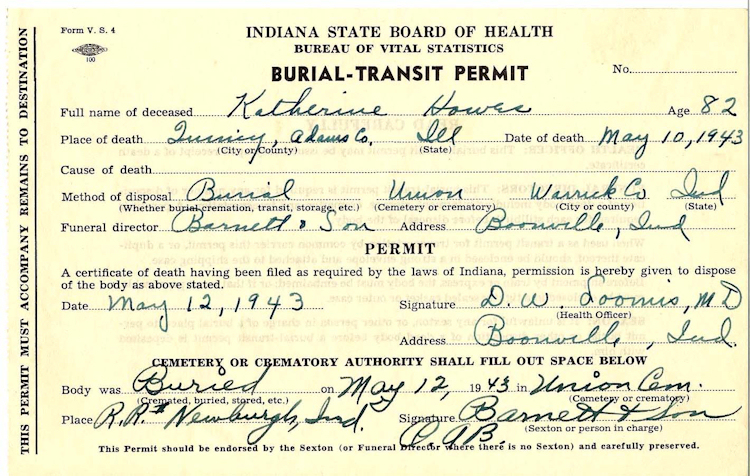 Form V. S. 4
INDIANA STATE BOARD OF HEALTH
BUREAU OF VITAL STATISTICS
100
BURIAL-TRANSIT PERMIT
No.
Full name of deceased Katherine Howes Age 82
Place of death Quincy, Adams Co. Ill Date of death May 10, 1943
(City or County) (State)
Cause of death
Method of disposal Burial Union Warrick Co Ind
(Whether burial, cremation, transit, storage, etc.) (Cemetery or crematory) (City or county) (State)
Funeral director Barnett & Son Address Boonville, Ind
PERMIT
A certificate of death having been filed as required by the laws of Indiana, permission is hereby given to dispose
of the body as above stated.
Date May 12, 1943 Signature D. W. Loomis, MD
(Health Officer)
Address Boonville, Ind.
CEMETERY OR CREMATORY AUTHORITY SHALL FILL OUT SPACE BELOW
Body was Buried on May 12, 1943 in Union Cem.
(Cremated, buried, stored, etc.) (Cemetery or crematory)
Place R.R. Newburgh, Ind. Signature Barnett & Son
(Sexton or person in charge)
This Permit should be endorsed by the Sexton (or Funeral Director where there is no Sexton) and carefully preserved.
THIS PERMIT MUST ACCOMPANY REMAINS TO DESTINATION